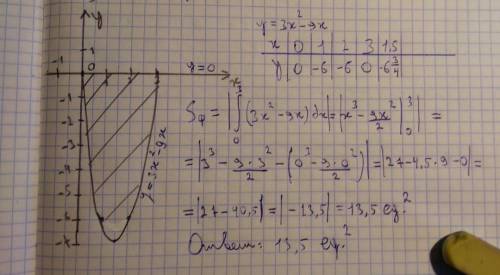 y
1
-1
-1
-2
-3
-4
-5
-6
-7
x
y=3x²-9x
y=3x²-9x
x | 0 | 1 | 2 | 3 | 1,5
y | 0 | -6 | -6 | 0 | -6 3/4
y=0
Sф = |∫₀³ (3x²-9x)dx| = |x³ - 9x²/2 |₀³| =
= |3³ - 9·3²/2 - (0³ - 9·0²/2)| = |27-4,5·9-0| =
= |27-40,5| = |-13,5| = 13,5 ед.²
Ответ: 13,5 ед.²